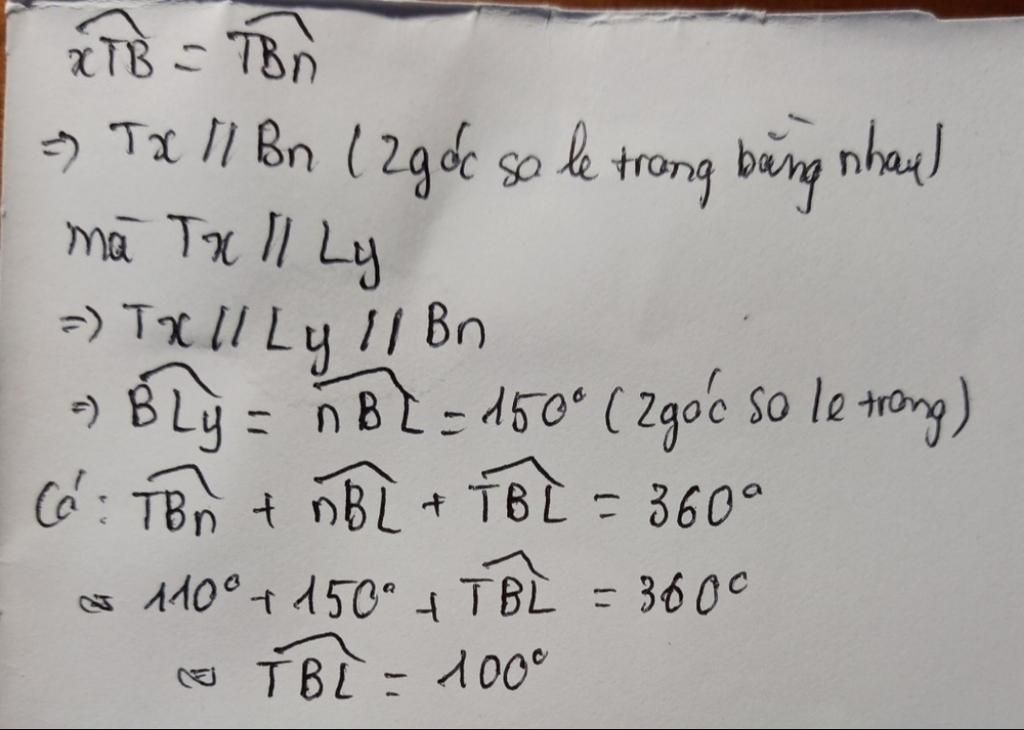 xTB = TBn
=> Tx // Bn (2 góc so le trong bằng nhau)
mà Tx // Ly
=> Tx // Ly // Bn
=> BLy = nBL = 150° (2 góc so le trong)
Có: TBn + nBL + TBL = 360°
⇔ 110° + 150° + TBL = 360°
⇔ TBL = 100°